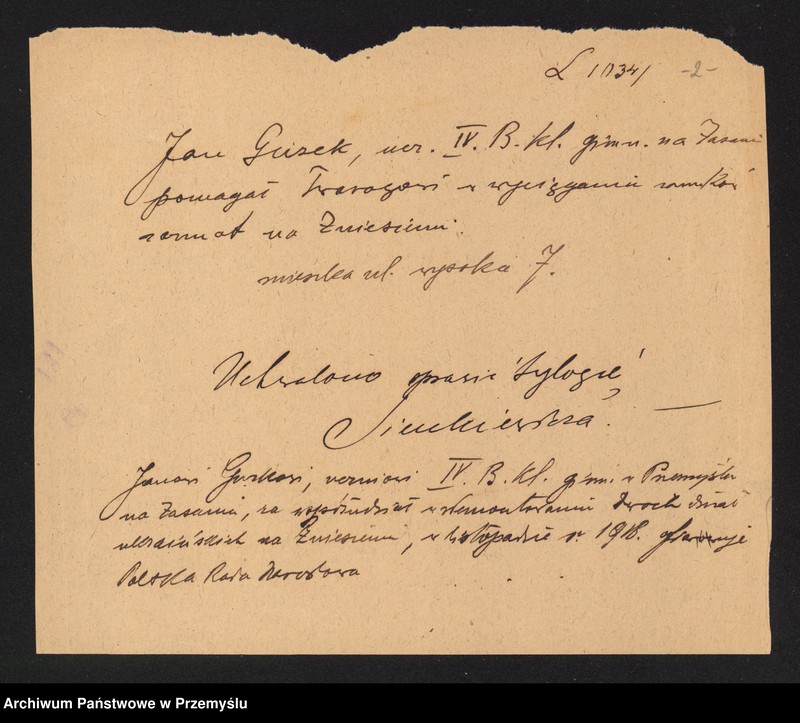 L 1034/ -2-
Jan Guzek, ucz. IV. B. kl. gimn. na Zasani
pomagał w wyciąganiu zamków
armat na Zniesieniu.
mieszka ul. wysoka 7.
Uchwalono sprawić "tylogię"
Sienkiewicza. —
Janowi Guzkowi, uczniowi IV. B. kl. gimn. w Przemyślu
na Zasaniu, za współudział w zdemontowaniu dwóch dział
ukraińskich na Zniesieniu, w listopadzie r. 1918. ofiaruje
Polska Rada Narodowa
Archiwum Państwowe w Przemyślu